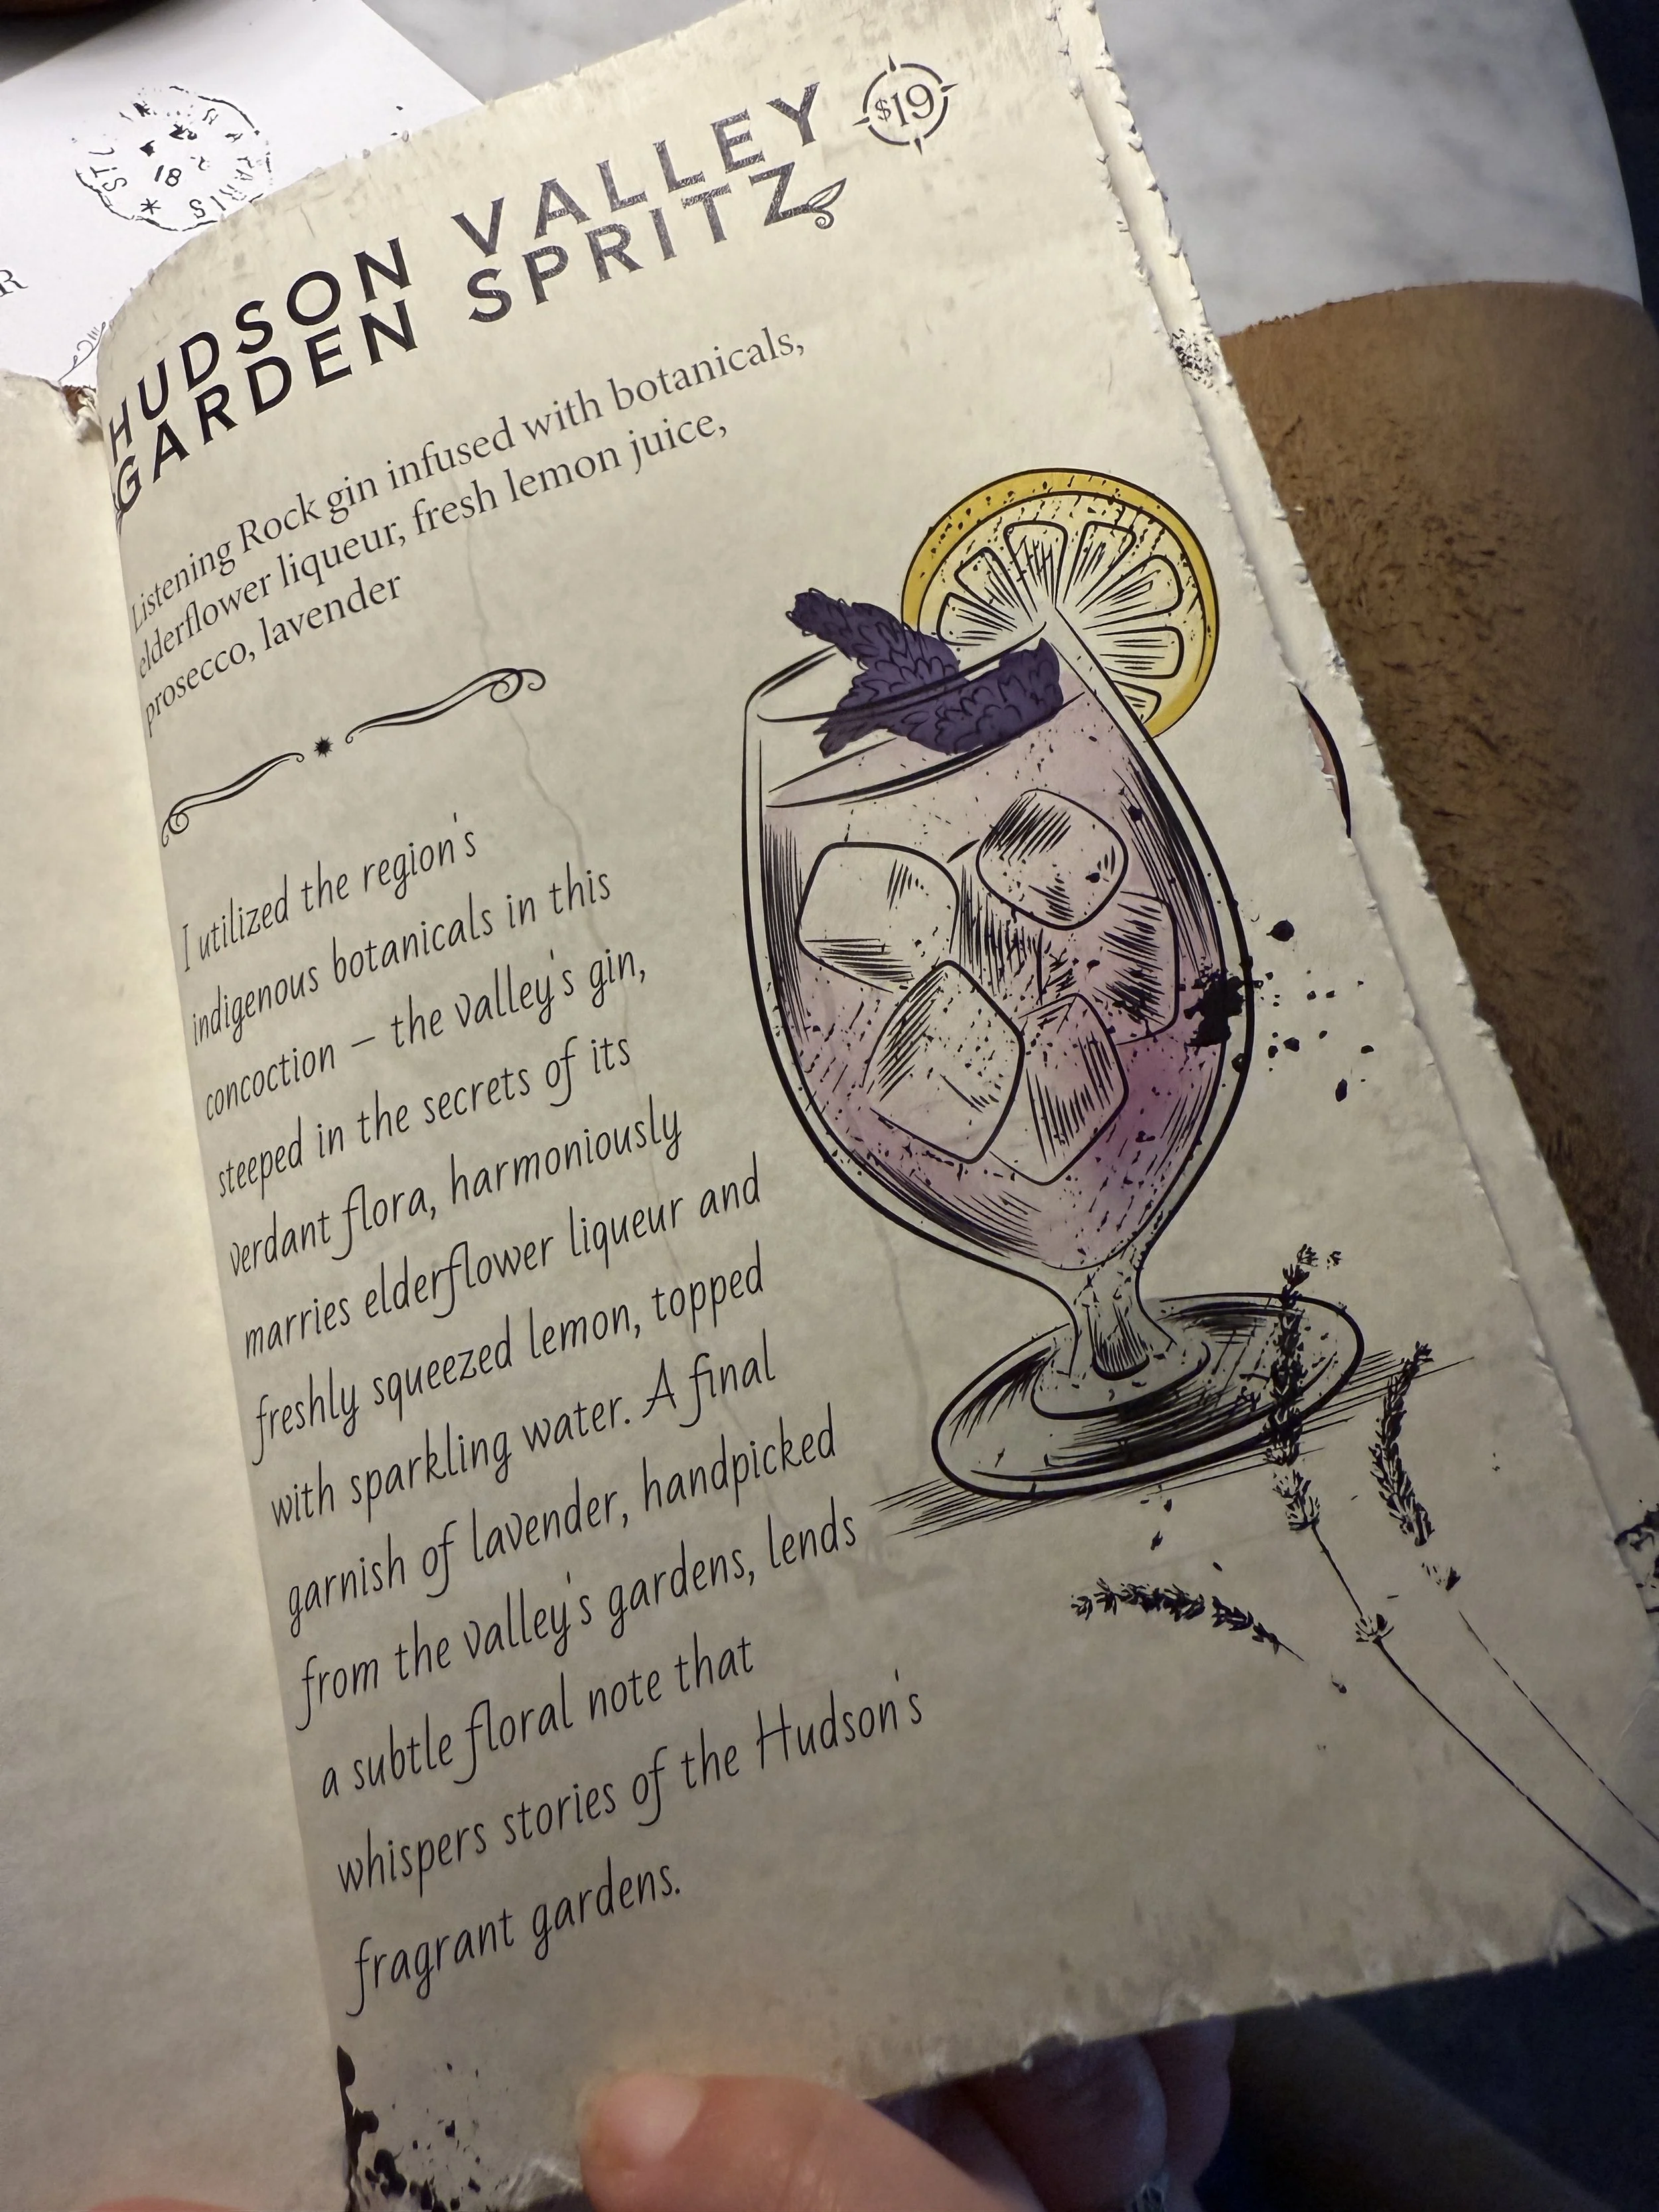 R
HUDSON VALLEY
GARDEN SPRITZ
$19
Listening Rock gin infused with botanicals,
elderflower liqueur, fresh lemon juice,
prosecco, lavender
I utilized the region's
indigenous botanicals in this
concoction – the valley's gin,
steeped in the secrets of its
verdant flora, harmoniously
marries elderflower liqueur and
freshly squeezed lemon, topped
with sparkling water. A final
garnish of lavender, handpicked
from the valley's gardens, lends
a subtle floral note that
whispers stories of the Hudson's
fragrant gardens.